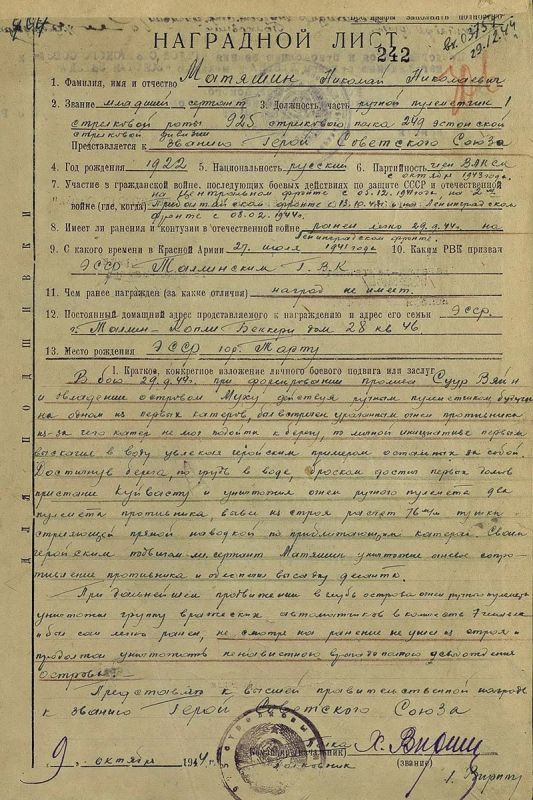 НАГРАДНОЙ ЛИСТ
242
вх. 3751
29.12.44
1. Фамилия, имя и отчество Матяшин Николай Николаевич
2. Звание младший сержант 3. Должность, часть ручной пулеметчик 1
стрелковой роты 925 стрелкового полка 249 эстонской
стрелковой дивизии
Представляется к званию Герой Советского Союза
4. Год рождения 1922 5. Национальность русский 6. Партийность член ВЛКСМ
с октября 1943 года.
7. Участие в гражданской войне, последующих боевых действиях по защите СССР и отечественной
на Центральном фронте с 05.12. на 2-м
войне (где, когда) Прибалтийском фронте с 13.10. на Ленинградском
фронте с 03.02.1944г.
8. Имеет ли ранения и контузии в отечественной войне ранен легко 29.9.44г. на
Ленинградском фронте.
9. С какого времени в Красной Армии 27 июля 1941 года 10. Каким РВК призван
ЭССР Таллинским Г.В.К.
11. Чем ранее награжден (за какие отличия) наград не имеет.
12. Постоянный домашний адрес представляемого к награждению и адрес его семьи ЭССР.
г. Таллин-Копли дом 28 кв 46.
13. Место рождения ЭССР гор. Тарту
I. Краткое, конкретное изложение личного боевого подвига или заслуг
В бою 29.9.44г. при форсировании пролива Суур Вяйн
и овладение островом Муху действуя ручным пулеметчиком будучи
на одном из первых катеров, был встречен ураганным огнем противника
из-за чего катер не мог подойти к берегу, по личной инициативе первым
выскочил в воду увлекая геройским примером остальных за собой.
Достигнув берега, по грудь в воде, броском достиг первым
пристани Куйвасту и уничтожил огнем ручного пулемета два
пулемета противника, вывел из строя расчет 76 м/м пушки
стреляющей прямой наводкой по приближающим катерам. Своим
геройским подвигом мл. сержант Матяшин уничтожил огневое сопро-
тивление противника и обеспечил высадку десанта.
При дальнейшем продвижении в глубь острова огнем ручного пулемета
уничтожил группу вражеских автоматчиков в количестве 7 человек
и был сам легко ранен, не смотря на ранение не ушел из строя и
продолжал уничтожать ненавистного врага до полного освобождения
острова.
Представлен к высшей правительственной награде
к званию Герой Советского Союза
полка
Командир (начальник)
полковник (звание)
9 октября 1944 г.
ДЛЯ ПОДШИВКИ